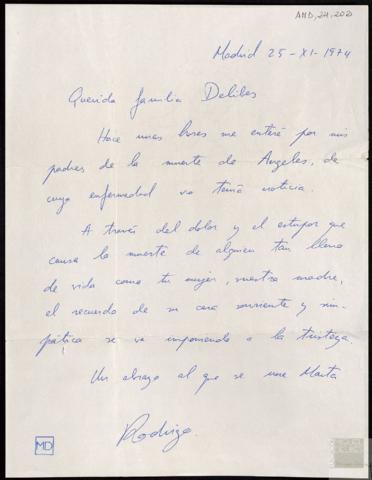 AMD, 24, 202
Madrid 25-XI-1974
Querida familia Delibes
Hace unas horas me enteré por mis
padres de la muerte de Angeles, de
cuya enfermedad no tenía noticia.
A través del dolor y el estupor que
causa la muerte de alguien tan lleno
de vida como tu mujer, vuestra madre,
el recuerdo de su cara sonriente y sim-
pática se va imponiendo a la tristeza.
Un abrazo al que se une Marta
Rodrigo.
MD